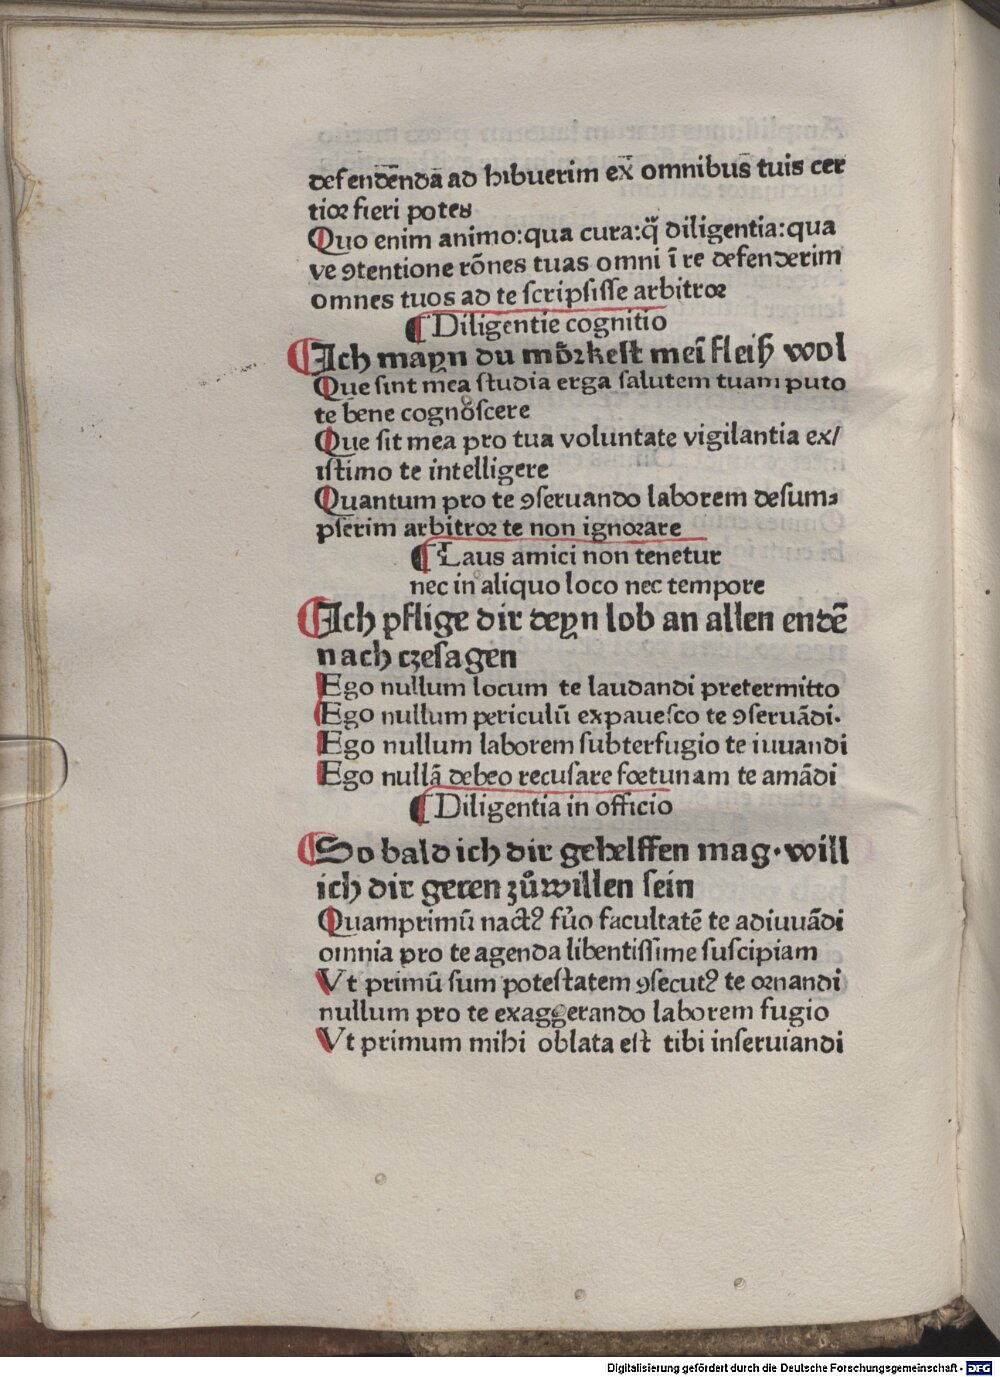 defendēndā ad hibuerim ex̄ omnibus̄ tuis cer
tior fieri potes
Quo enim animo:qua cura:q̄̈ diligentia:qua
ve ꝯtentione rōnes tuas omni ī re defenderim
omnes tuos ad te scripsisse arbitror
¶Diligentie cognitio
¶Ich mayn du mörkest meī fleiß wol
Que sint mea studia erga salutem tuam puto
te bene cognoscere
Que sit mea pro tua voluntate vigilantia ex/
istimo te intelligere
Quantum pro te ꝯseruando laborem desum⸗
pserim arbitror te non ignorare
¶Laus amici non tenetur
nec in aliquo loco nec tempore
¶Ich pflige dir deyn lob an allen endē
nach czesagen
Ego nullum locum te laudandi pretermitto
Ego nullum periculū expauesco te ꝯseruādi.
Ego nullum laborem subterfugio te iuuandi
Ego nullā debeo recusare foetunam te amādi
¶Diligentia in officio
¶So bald ich dir gehelffen mag.will
ich dir geren zůwillen sein
Quamprimū nactꝰ fůo facultatē te adiuuādi
omnia pro te agenda libentissime suscipiam
Vt primū sum potestatem ꝯsecutꝰ te ornandi
nullum pro te exaggerando laborem fugio
Vt primum mihi oblata est tibi inseruiandi
Digitalisierung gefördert durch die Deutsche Forschungsgemeinschaft - DFG